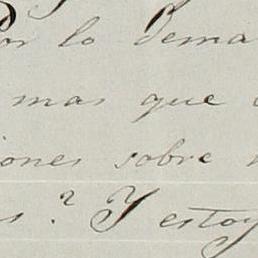 Por lo dema
mas que
iones sobre
s.? Y estoy